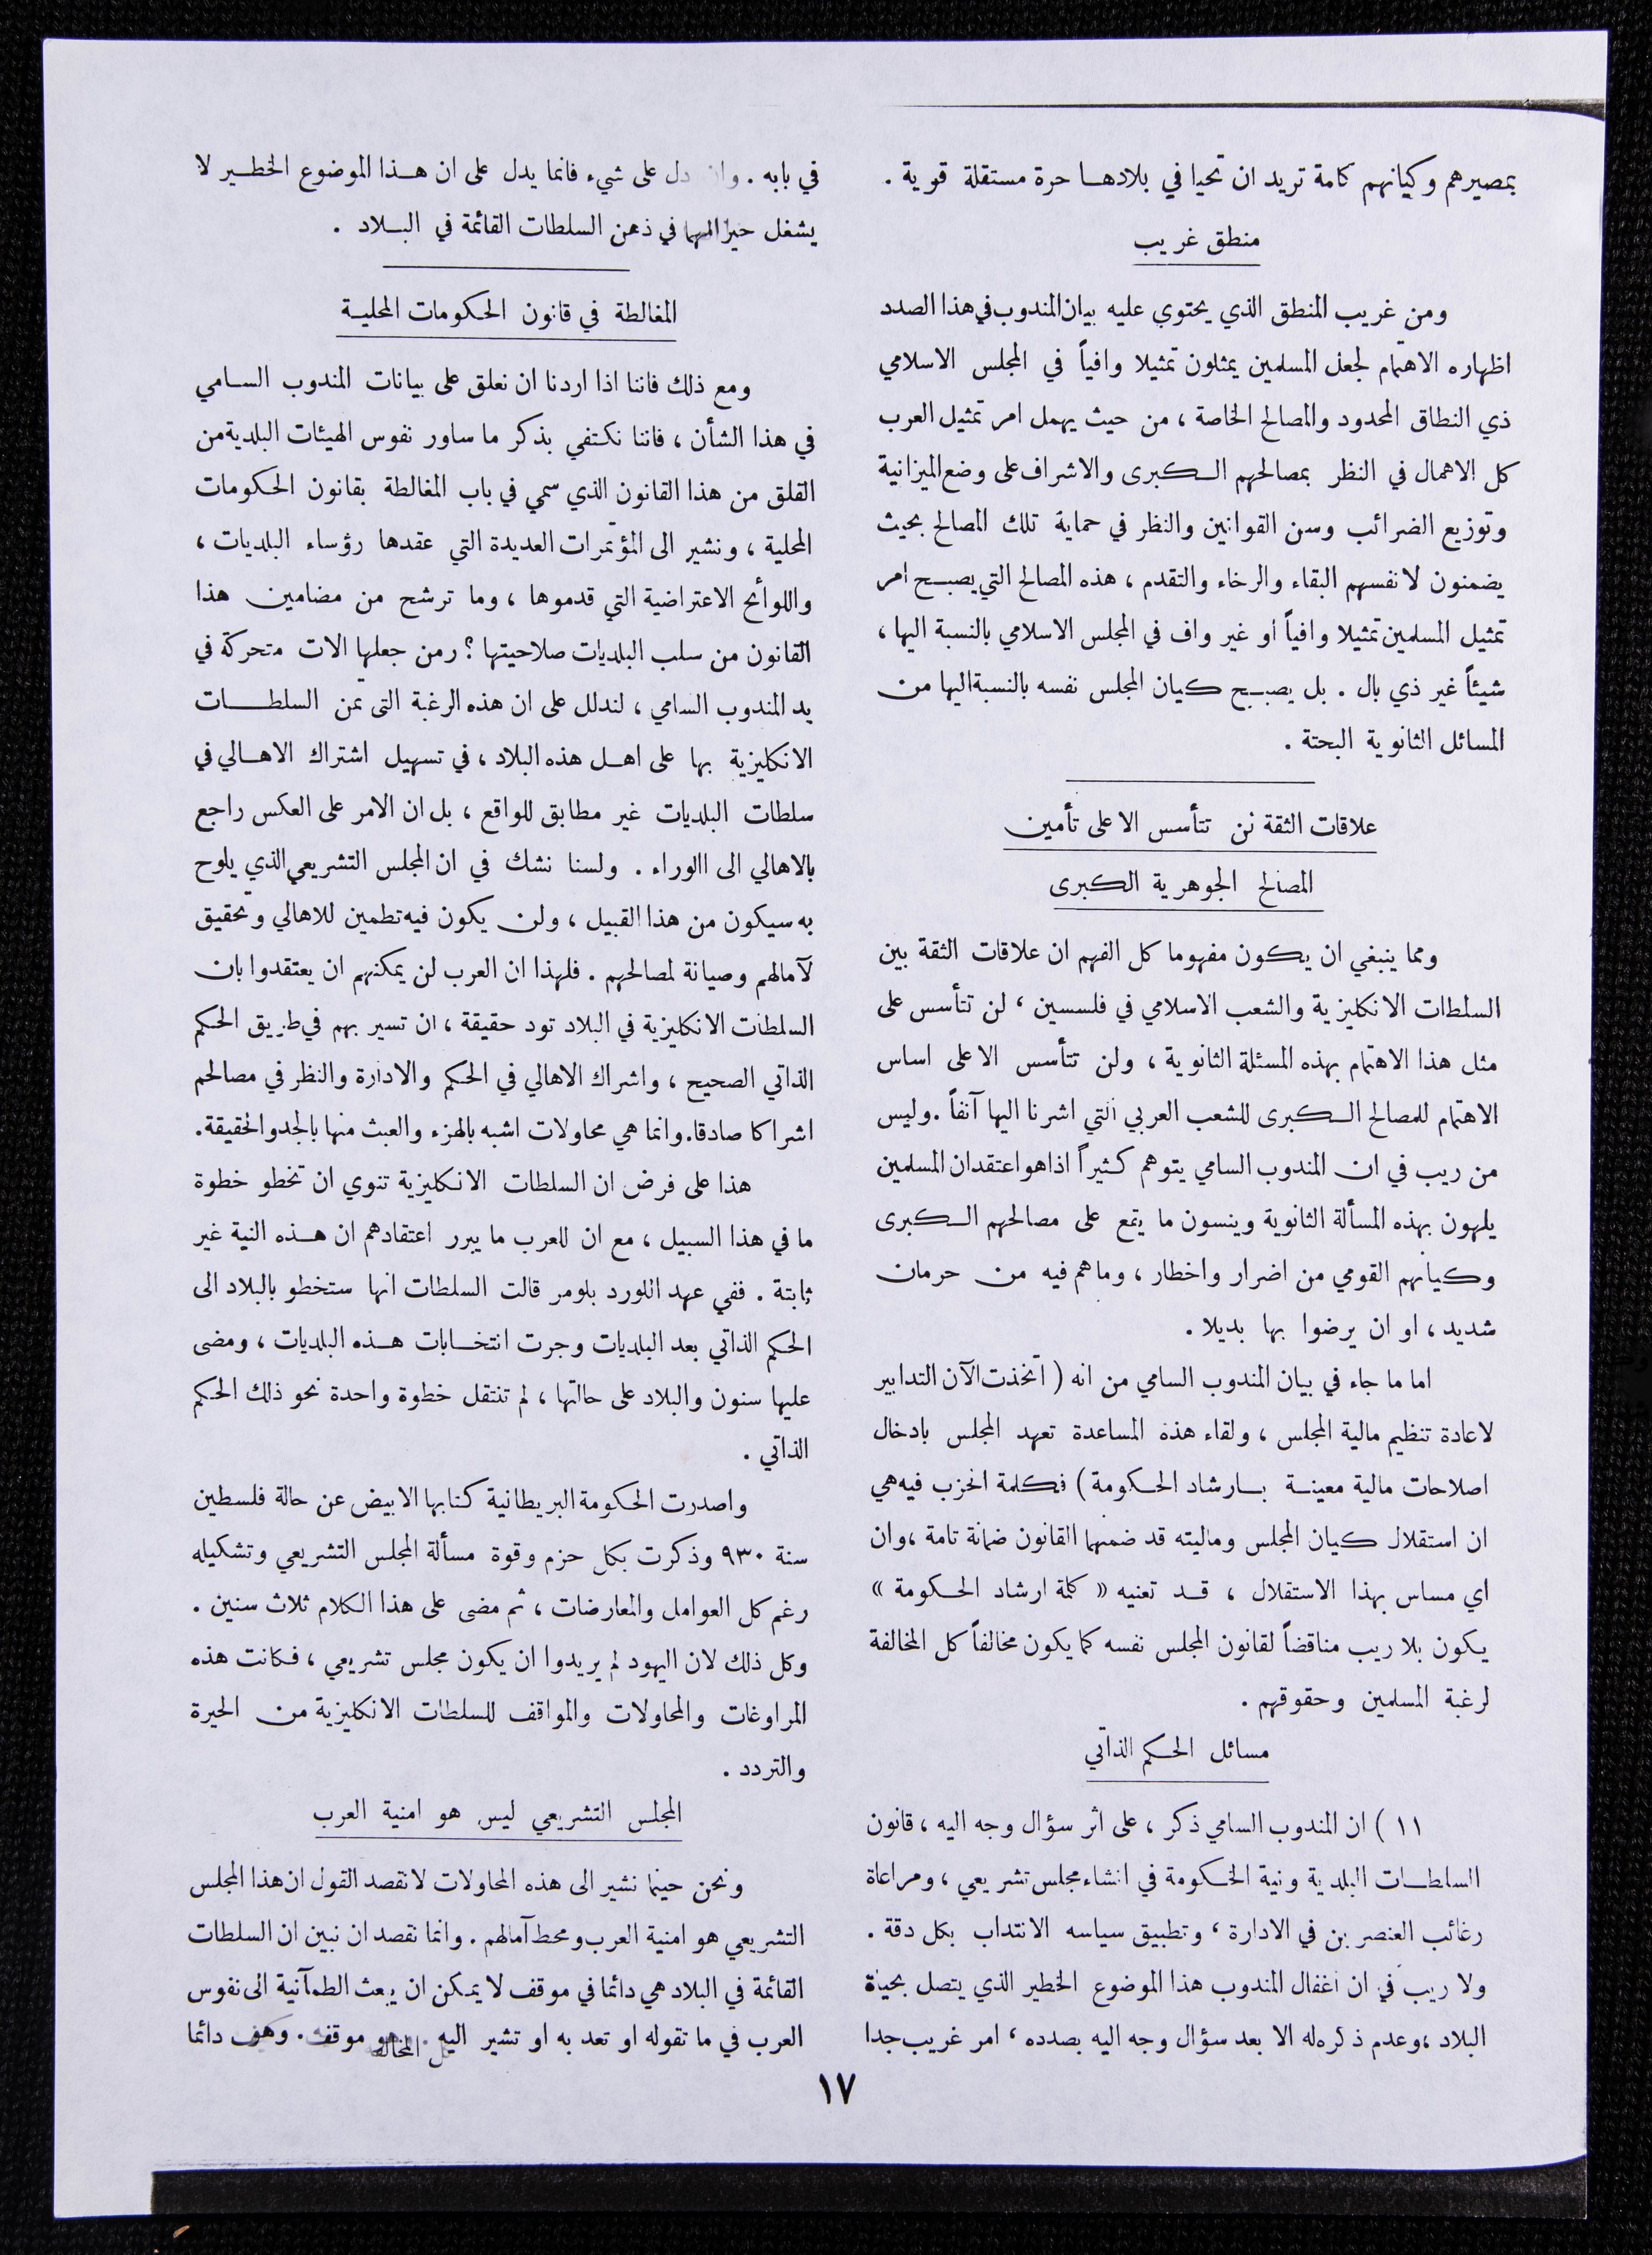 بمصيرهم وكيانهم كامة تريد ان تحيا في بلادهـا حرة مستقلة قوية .
منطق غريب
ومن غريب المنطق الذي يحتوي عليه بيان المندوب في هذا الصدد
اظهاره الاهتمام لجعل المسلمين يمثلون تمثيلا وافياً في المجلس الاسلامي
ذي النطاق المحدود والمصالح الخاصة ، من حيث يهمل امر تمثيل العرب
كل الاهمال في النظر بمصالحهم الكبرى والاشراف على وضع الميزانية
وتوزيع الضرائب وسن القوانين والنظر في حماية تلك المصالح بحيث
يضمنون لانفسهم البقاء والرخاء والتقدم ، هذه المصالح التي يصبح امر
تمثيل المسلمين تمثيلا وافياً او غير واف في المجلس الاسلامي بالنسبة اليها ،
شيئاً غير ذي بال . بل يصبح كيان المجلس نفسه بالنسبة اليها من
المسائل الثانوية البحتة .
علاقات الثقة لن تتأسس الا على تأمين
المصالح الجوهرية الكبرى
ومما ينبغي ان يكون مفهوما كل الفهم ان علاقات الثقة بين
السلطات الانكليزية والشعب الاسلامي في فلسسين ، لن تتأسس على
مثل هذا الاهتمام بهذه المسئلة الثانوية ، ولن تتأسس الا على اساس
الاهتمام للمصالح الكبرى للشعب العربي التي اشرنا اليها آنفاً . وليس
من ريب في ان المندوب السامي يتوهم كثيراً اذا هو اعتقد ان المسلمين
يلهون بهذه المسألة الثانوية وينسون ما يقع على مصالحهم الكبرى
وكيانهم القومي من اضرار واخطار ، وما هم فيه من حرمان
شديد ، او ان يرضوا بها بديلا .
اما ما جاء في بيان المندوب السامي من انه ( اتخذت الآن التدابير
لاعادة تنظيم مالية المجلس ، ولقاء هذه المساعدة تعهد المجلس بادخال
اصلاحات مالية معينة بارشاد الحكومة ) فكلمة الحزب فيه هي
ان استقلال كيان المجلس وماليته قد ضمنهما القانون ضمانة تامة ، وان
اي مساس بهذا الاستقلال ، قد تعنيه « كلمة ارشاد الحكومة »
يكون بلا ريب مناقضاً لقانون المجلس نفسه كما يكون مخالفاً كل المخالفة
لرغبة المسلمين وحقوقهم .
مسائل الحكم الذاتي
١١ ) ان المندوب السامي ذكر ، على اثر سؤال وجه اليه ، قانون
السلطات البلدية ونية الحكومة في انشاء مجلس تشريعي ، ومراعاة
رغائب العنصرين في الادارة ، وتطبيق سياسه الانتداب بكل دقة .
ولا ريب في ان اغفال المندوب هذا الموضوع الخطير الذي يتصل بحياة
البلاد ، وعدم ذكره له الا بعد سؤال وجه اليه بصدده ، امر غريب جدا
في بابه . وان دل على شيء فانما يدل على ان هـذا الموضوع الخطـير لا
يشغل حيزا في ذهن السلطات القائمة في البـلاد .
المغالطة في قانون الحكومات المحلية
ومع ذلك فاننا اذا اردنا ان نعلق على بيانات المندوب السـامي
في هذا الشأن ، فاننا نكتفي بذكر ما ساور نفوس الهيئات البلدية من
القلق من هذا القانون الذي سمي في باب المغالطة بقانون الحكومات
المحلية ، ونشير الى المؤتمرات العديدة التي عقدها رؤساء البلديات ،
واللوائح الاعتراضية التي قدموها ، وما ترشح من مضامين هذا
القانون من سلب البلديات صلاحيتها ؟ ومن جعلها الات متحركة في
يد المندوب السامي ، لندلل على ان هذه الرغبة التي تمن السلطـات
الانكليزية بها على اهـل هذه البلاد ، في تسهيل اشتراك الاهـالي في
سلطات البلديات غير مطابق للواقع ، بل ان الامر على العكس راجع
بالاهالي الى االوراء . ولسنا نشك في ان المجلس التشريعي الذي يلوح
به سيكون من هذا القبيل ، ولن يكون فيه تطمين للاهالي وتحقيق
لآمالهم وصيانة لمصالحهم . فلهذا ان العرب لن يمكنهم ان يعتقدوا بان
السلطات الانكليزية في البلاد تود حقيقة ، ان تسير بهم في طريق الحكم
الذاتي الصحيح ، واشراك الاهالي في الحكم والادارة والنظر في مصالحم
اشراكا صادقا. وانما هي محاولات اشبه بالهزء والعبث منها بالجد والحقيقة.
هذا على فرض ان السلطات الانكليزية تنوي ان تخطو خطوة
ما في هذا السبيل ، مع ان للعرب ما يبرر اعتقادهم ان هـذه النية غير
ثابتة . ففي عهد اللورد بلومر قالت السلطات انها ستخطو بالبلاد الى
الحكم الذاتي بعد البلديات وجرت انتخـابات هـذه البلديات ، ومضى
عليها سنون والبلاد على حالتها ، لم تنتقل خطوة واحدة نحو ذلك الحكم
الذاتي .
واصدرت الحكومة البريطانية كتابها الابيض عن حالة فلسطين
سنة ٩٣٠ وذكرت بكل حزم وقوة مسألة المجلس التشريعي وتشكيله
رغم كل العوامل والمعارضات ، ثم مضى على هذا الكلام ثلاث سنين .
وكل ذلك لان اليهود لم يريدوا ان يكون مجلس تشريعي ، فكانت هذه
المراوغات والمحاولات والمواقف للسلطات الانكليزية من الحيرة
والتردد .
المجلس التشريعي ليس هو امنية العرب
ونحن حينما نشير الى هذه المحاولات لا نقصد القول ان هذا المجلس
التشريعي هو امنية العرب ومحط آمالهم . وانما نقصد ان نبين ان السلطات
القائمة في البلاد هي دائما في موقف لا يمكن ان يبعث الطمآنية الى نفوس
العرب في ما تقوله او تعد به او تشير اليه . هو موقف . وهو دائما
١٧